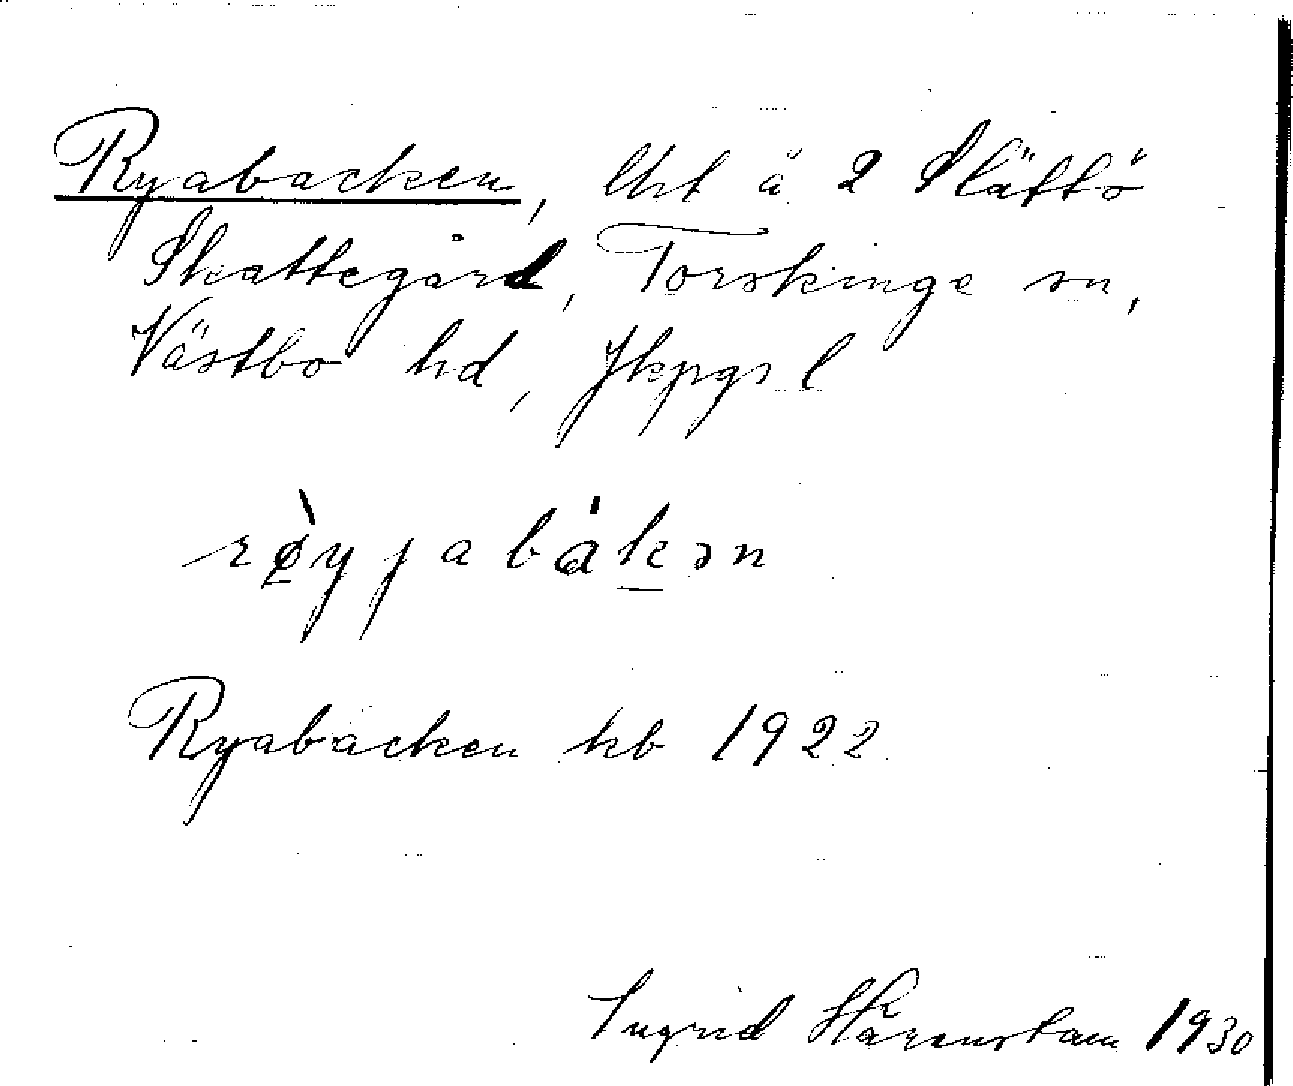 Ryabacken, lht å 2 Slättö
Skattegård, Torskinge sn,
Västbo hd, Jkpgs l
rø̀yjabákən
Ryabacken kb 1922
Ingrid 1930